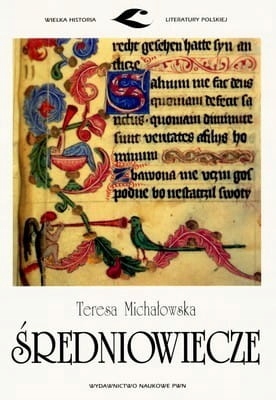 WIELKA HISTORIA LITERATURY POLSKIEJ
recht gesehen hatte syn an
Saluum me fac deus
quoniam defecit sa
nctus. quoniam diminute
sunt veritates afilijs ho
minum
Zbawona me vczin gos
podne bo nestatczil swoty
Teresa Michałowska
ŚREDNIOWIECZE
WYDAWNICTWO NAUKOWE PWN